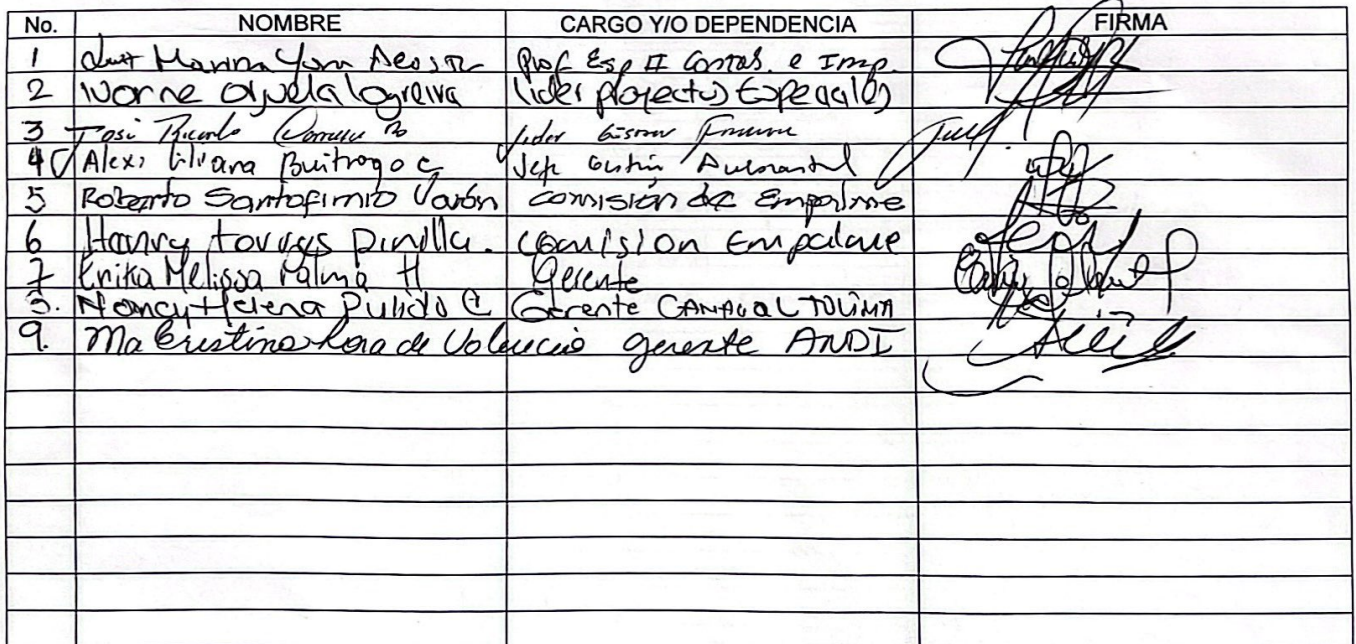 No. NOMBRE CARGO Y/O DEPENDENCIA FIRMA
1 Luz Marina Prof Esp II Contab. e Imp.
2 Ivonne Orjuela Logreira Lider proyectos Especiales
3 José Ricardo Lider
4 Alexi Liliana Buitrago C Jefe Gestión
5 Roberto Santofimio Varón comisión de Empalme
6 Hanry Torres Pinilla. Comision Empalme
7 Erika Melissa Palma H Gerente
Nancy Helena Pulido C Gerente CAMACOL TOLIMA
9. Ma Cristina Lara de Valencia gerente ANDI